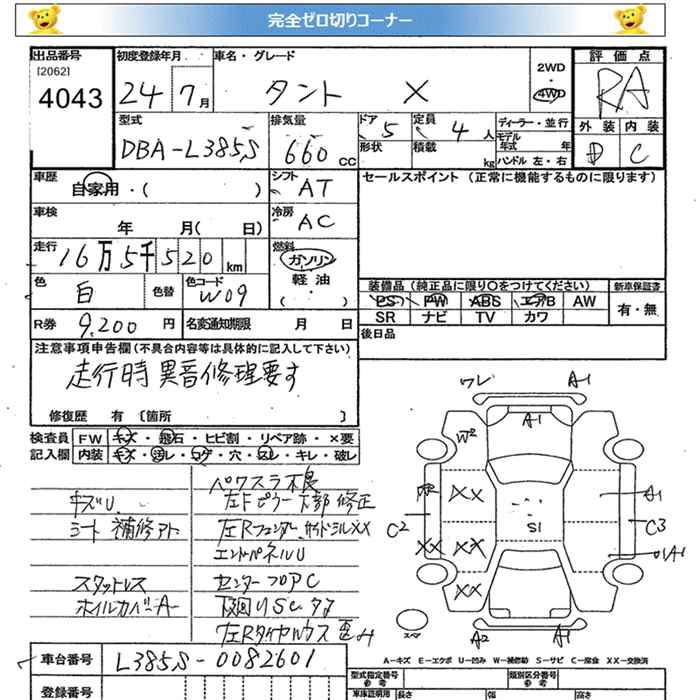 完全ゼロ切りコーナー
出品番号 [2062] 4043
初度登録年月 24 7月
車名・グレード タント X
2WD・4WD
評価点 RA
外装 D 内装 C
型式 DBA-L385S
排気量 660 cc
ドア 5 定員 4人
形状 積載 kg
ディーラー・並行
モデル年式 年
ハンドル 左・右
車歴 自家用・( )
シフト AT
セールスポイント (正常に機能するものに限ります)
車検 年 月( 日)
冷房 AC
走行 16万5千520km
燃料 ガソリン 軽油 ・( )
色 白 色替 色コード W09
装備品 (純正品に限り〇をつけてください) 新車保証書
PS PW ABS エアB AW 有・無
SR ナビ TV カワ
R券 9,200円 名変通知期限 月 日
後日品
注意事項申告欄 (不具合内容等は具体的に記入して下さい)
走行時 異音修理要す
修復歴 有 〔箇所 〕
検査員 FW キズ・飛石・ヒビ割・リペア跡・×要
記入欄 内装 キズ・汚レ・コゲ・穴・スレ・キレ・破レ
パワスラ不良
キズU 左Fピラー下部修正
シート補修アト 左Rフェンダー、サイドシルXX
エンドパネルU
スタットレス センターフロアC
ホイルカバーA 下廻りSC タタ
左Rタイヤハウス歪み
ワレ A1
A1
W2
XX A1
C2 S1 C3
XX XX A1
XX
スペア A2 A1
A-キズ E-エクボ U-凹み W-補修跡 S-サビ C-腐食 XX-交換済
車台番号 L385S-0082601
型式指定番号 参考 類別区分番号 参考
登録番号 車体証明用 長さ 幅 高さ